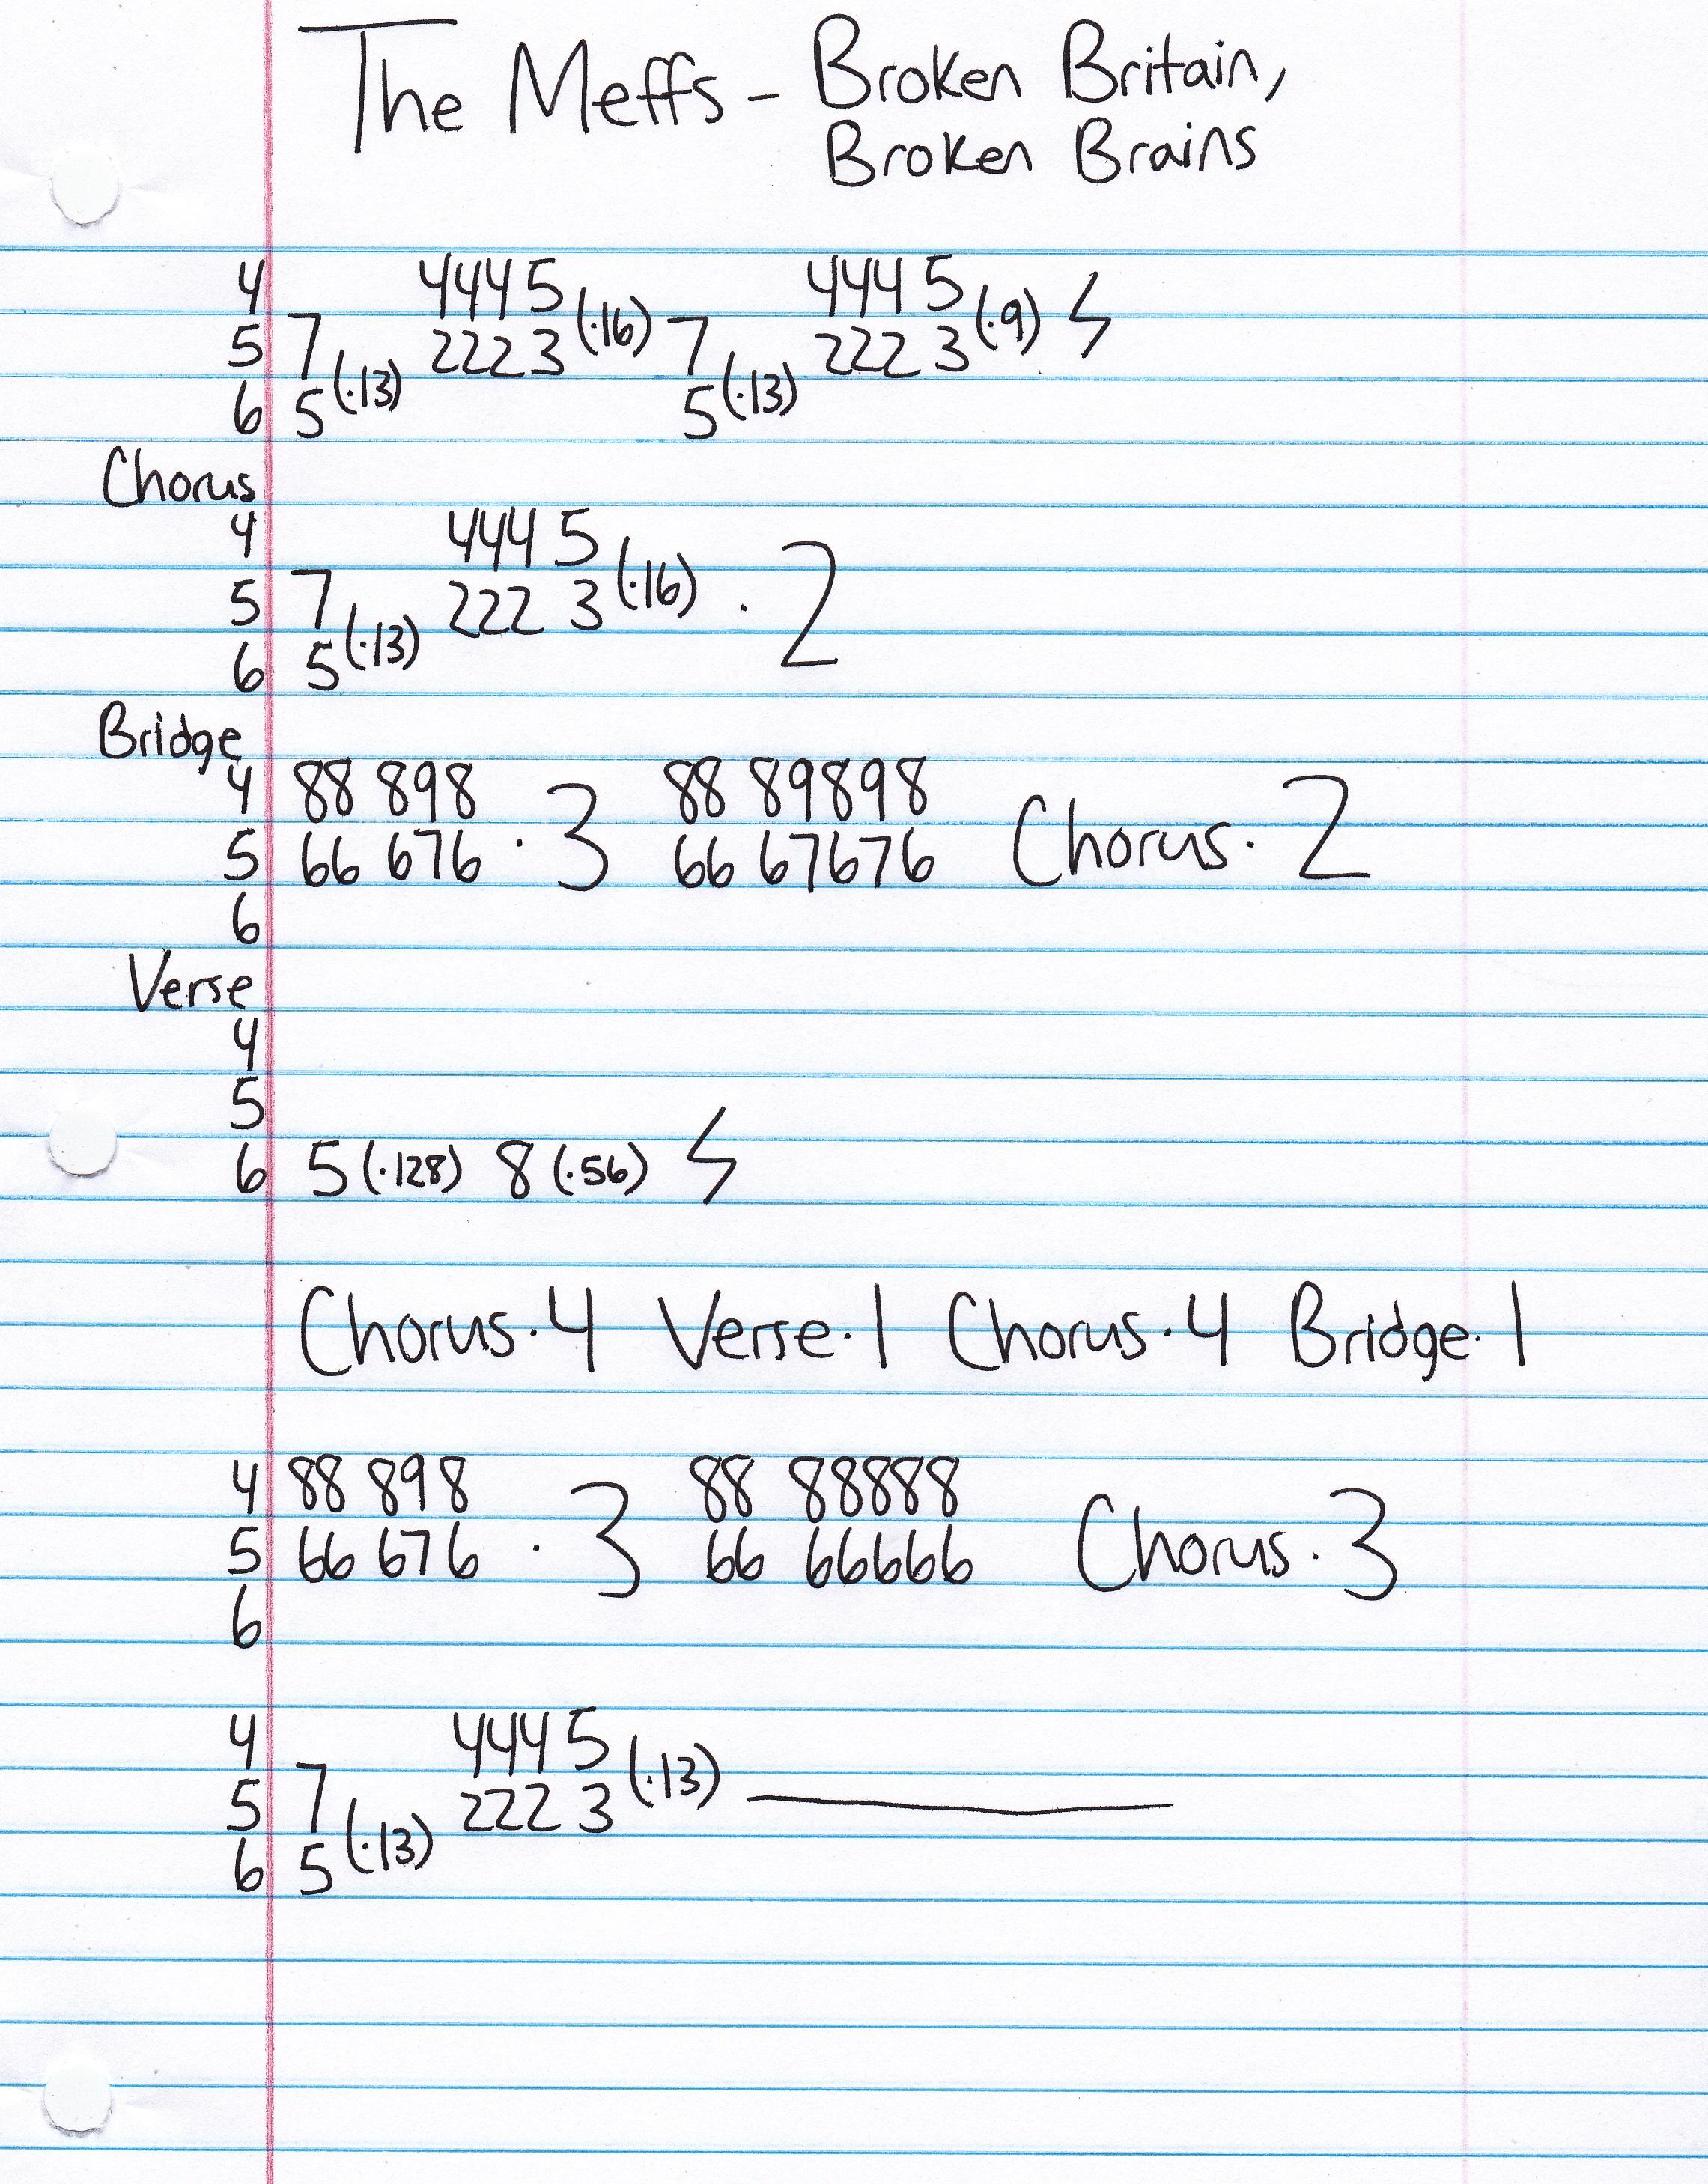 The Meffs - Broken Britain,
Broken Brains
4 444 5 444 5
5 7 222 3 (·16) 7 222 3 (·9)
6 5 (·13) 5 (·13)
Chorus
4 444 5
5 7 222 3 (·16) · 2
6 5 (·13)
Bridge
4 88 898 88 89898
5 66 676 · 3 66 67676 Chorus · 2
6
Verse
4
5
6 5 (·128) 8 (·56)
Chorus · 4 Verse · 1 Chorus · 4 Bridge · 1
4 88 898 88 88888
5 66 676 · 3 66 66666 Chorus · 3
6
4 444 5
5 7 222 3 (·13)
6 5 (·13)